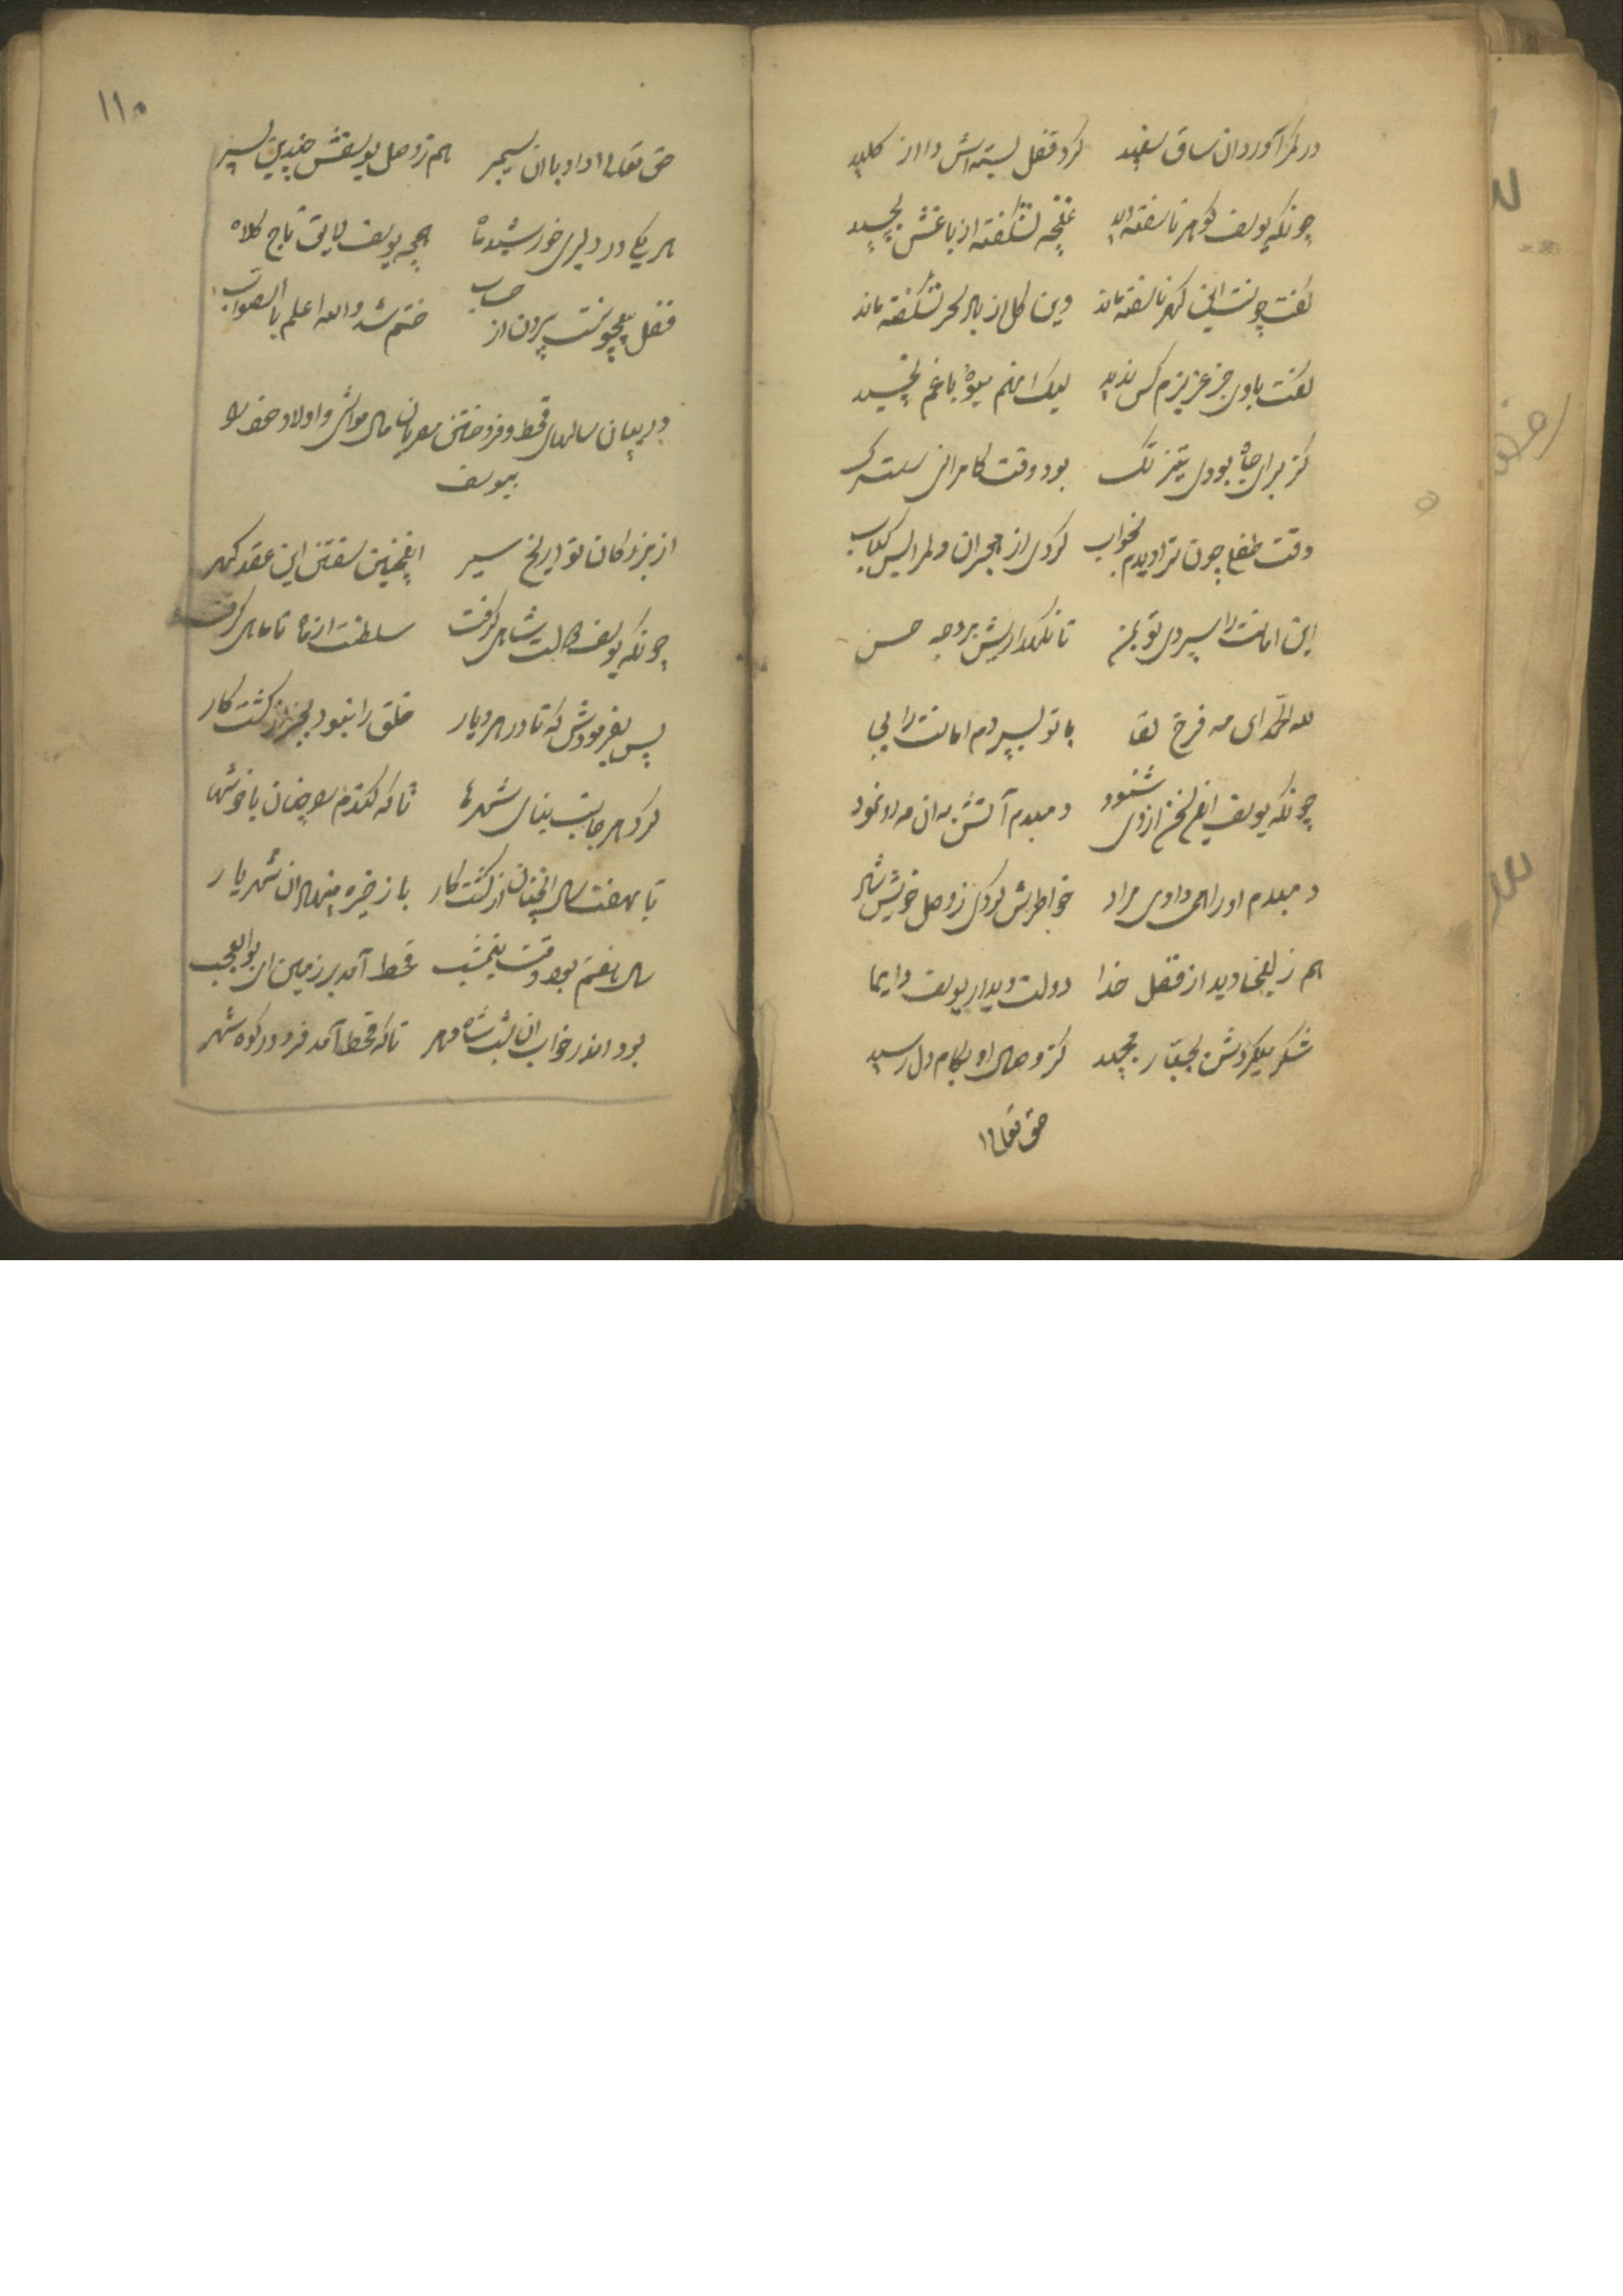 در کمر آورد ان ساق سفید کرد قفل بسته اش را از کلید
چونکه یوسف گوهر ناسفته دید غنچه نشکفته از باغش بچید
گفت چونست این گهر ناسفته ماند وین گل از باد سحر نشکفته ماند
گفت باوی جز عزیزم کس ندید لیک او هم میوهٔ باغم نچید
کز برای جاه بودی تیز تک بود وقت کامرانی سست رگ
وقت طفلی چون ترا دیدم بخواب کردی از هجران دلم را پس کباب
این امانت را سپردی تو بمن تا نگهداریش بر وجه حسن
لله الحمد ای مه فرخ لقا با تو بسپردم امانت را بجا
چونکه یوسف این سخن از وی شنود دمبدم آتش به ان مه رو نمود
دمبدم او را همی دادی مراد خواطرش کردی ز وصل خویش شاد
هم زلیخا دید از فضل خدا دولت دیدار یوسف دایما
شکر میکردش بجبار مجید کز وصال او بکام دل رسید
حق تعالی
۱۱۰
حق تعالی داد با ان سیمبر هم ز وصل یوسفش چندین پسر
هر یکی در دلبری خورشید و ماه همچو یوسف لایق تاج کلاه
فضل بیچونست بیرون از حساب ختم شد والله اعلم بالصواب
در بیان سالهای قحط و فروختن مصریان مال مواشی و اولاد خود را
بیوسف
از بزرگان تواریخ سیر اینچنین سفتن این عقد گهر
چونکه یوسف حالت شاهی گرفت سلطنت از ماه تا ماهی گرفت
پس بفرمودش که تا در هر دیار خلق را نبود بجز از کشت کار
کرد هر جانب بنای شهرها تا که گندم را چنان با خوشها
تا بهفت سال انچنان از کشت کار با زخیره مینهاد ان شهریار
سال هفتم بود وقت نیمشب قحط آمد بر زمین ای بوالعجب
بود اندر خواب ان شب شاه مهر تا که قحط آمد فرو در کوه شهر